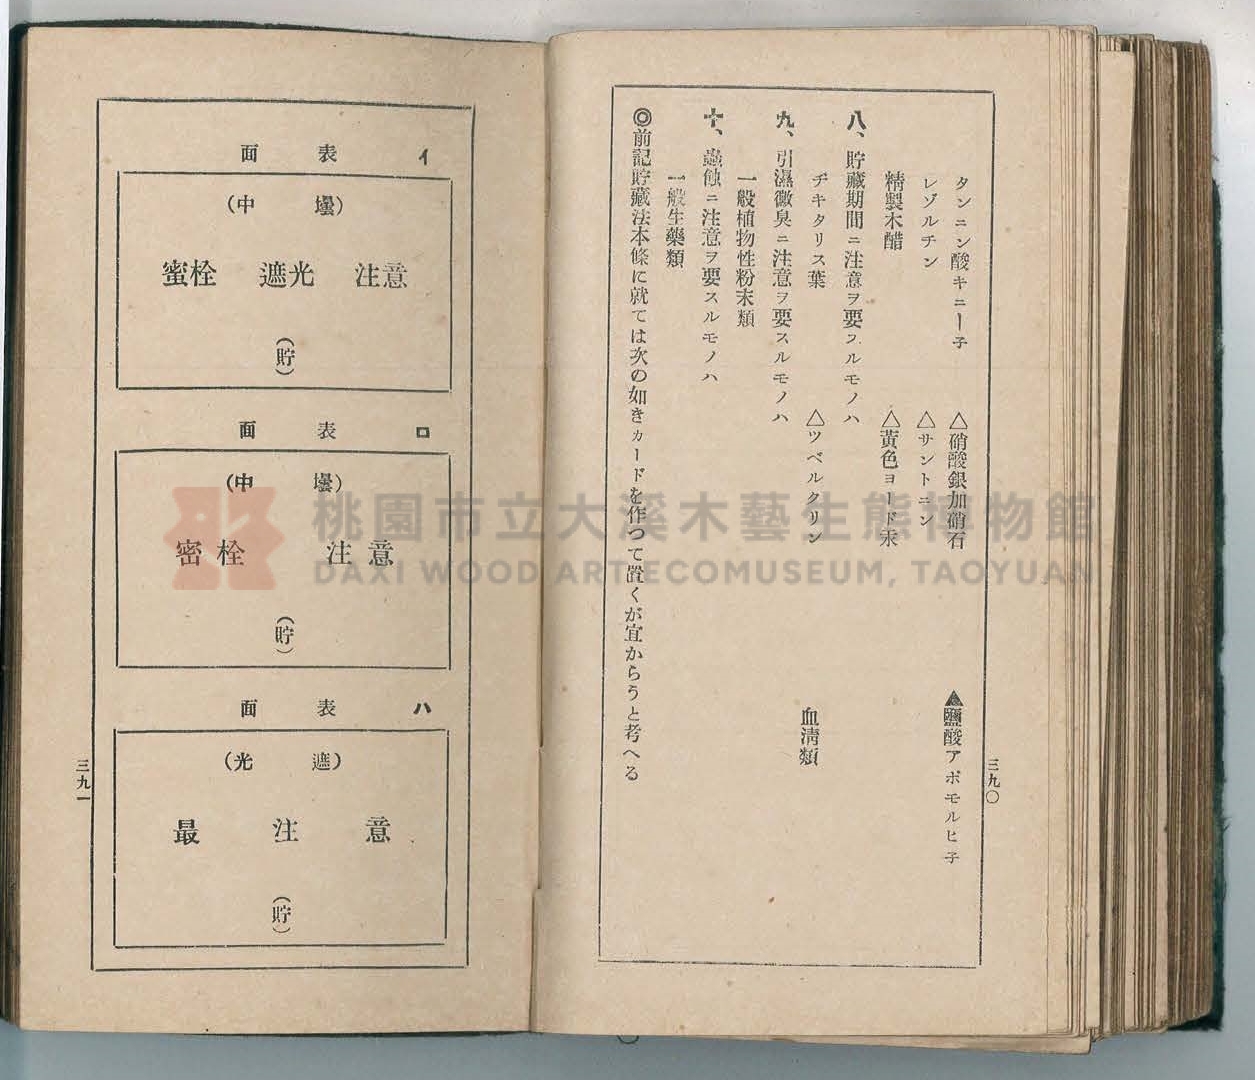 三九〇
タンニン酸キニー子 △硝酸銀加硝石 ▲鹽酸アポモルヒ子
レゾルチン △サントニン
精製木醋 △黃色ヨード汞
八、貯藏期間ニ注意ヲ要スルモノハ
ヂキタリス葉 △ツベルクリン 血淸類
九、引濕黴臭ニ注意ヲ要スルモノハ
一般植物性粉末類
十、蟲蝕ニ注意ヲ要スルモノハ
一般生藥類
◎前記貯藏法本條に就ては次の如きカードを作つて置くが宜からうと考へる
イ 表面
(中壜)
蜜栓 遮光 注意
(貯)
ロ 表面
(中壜)
密栓 注意
(貯)
ハ 表面
(光遮)
最注意
(貯)
三九一
桃園市立大溪木藝生態博物館
DAXI WOOD ART ECOMUSEUM, TAOYUAN